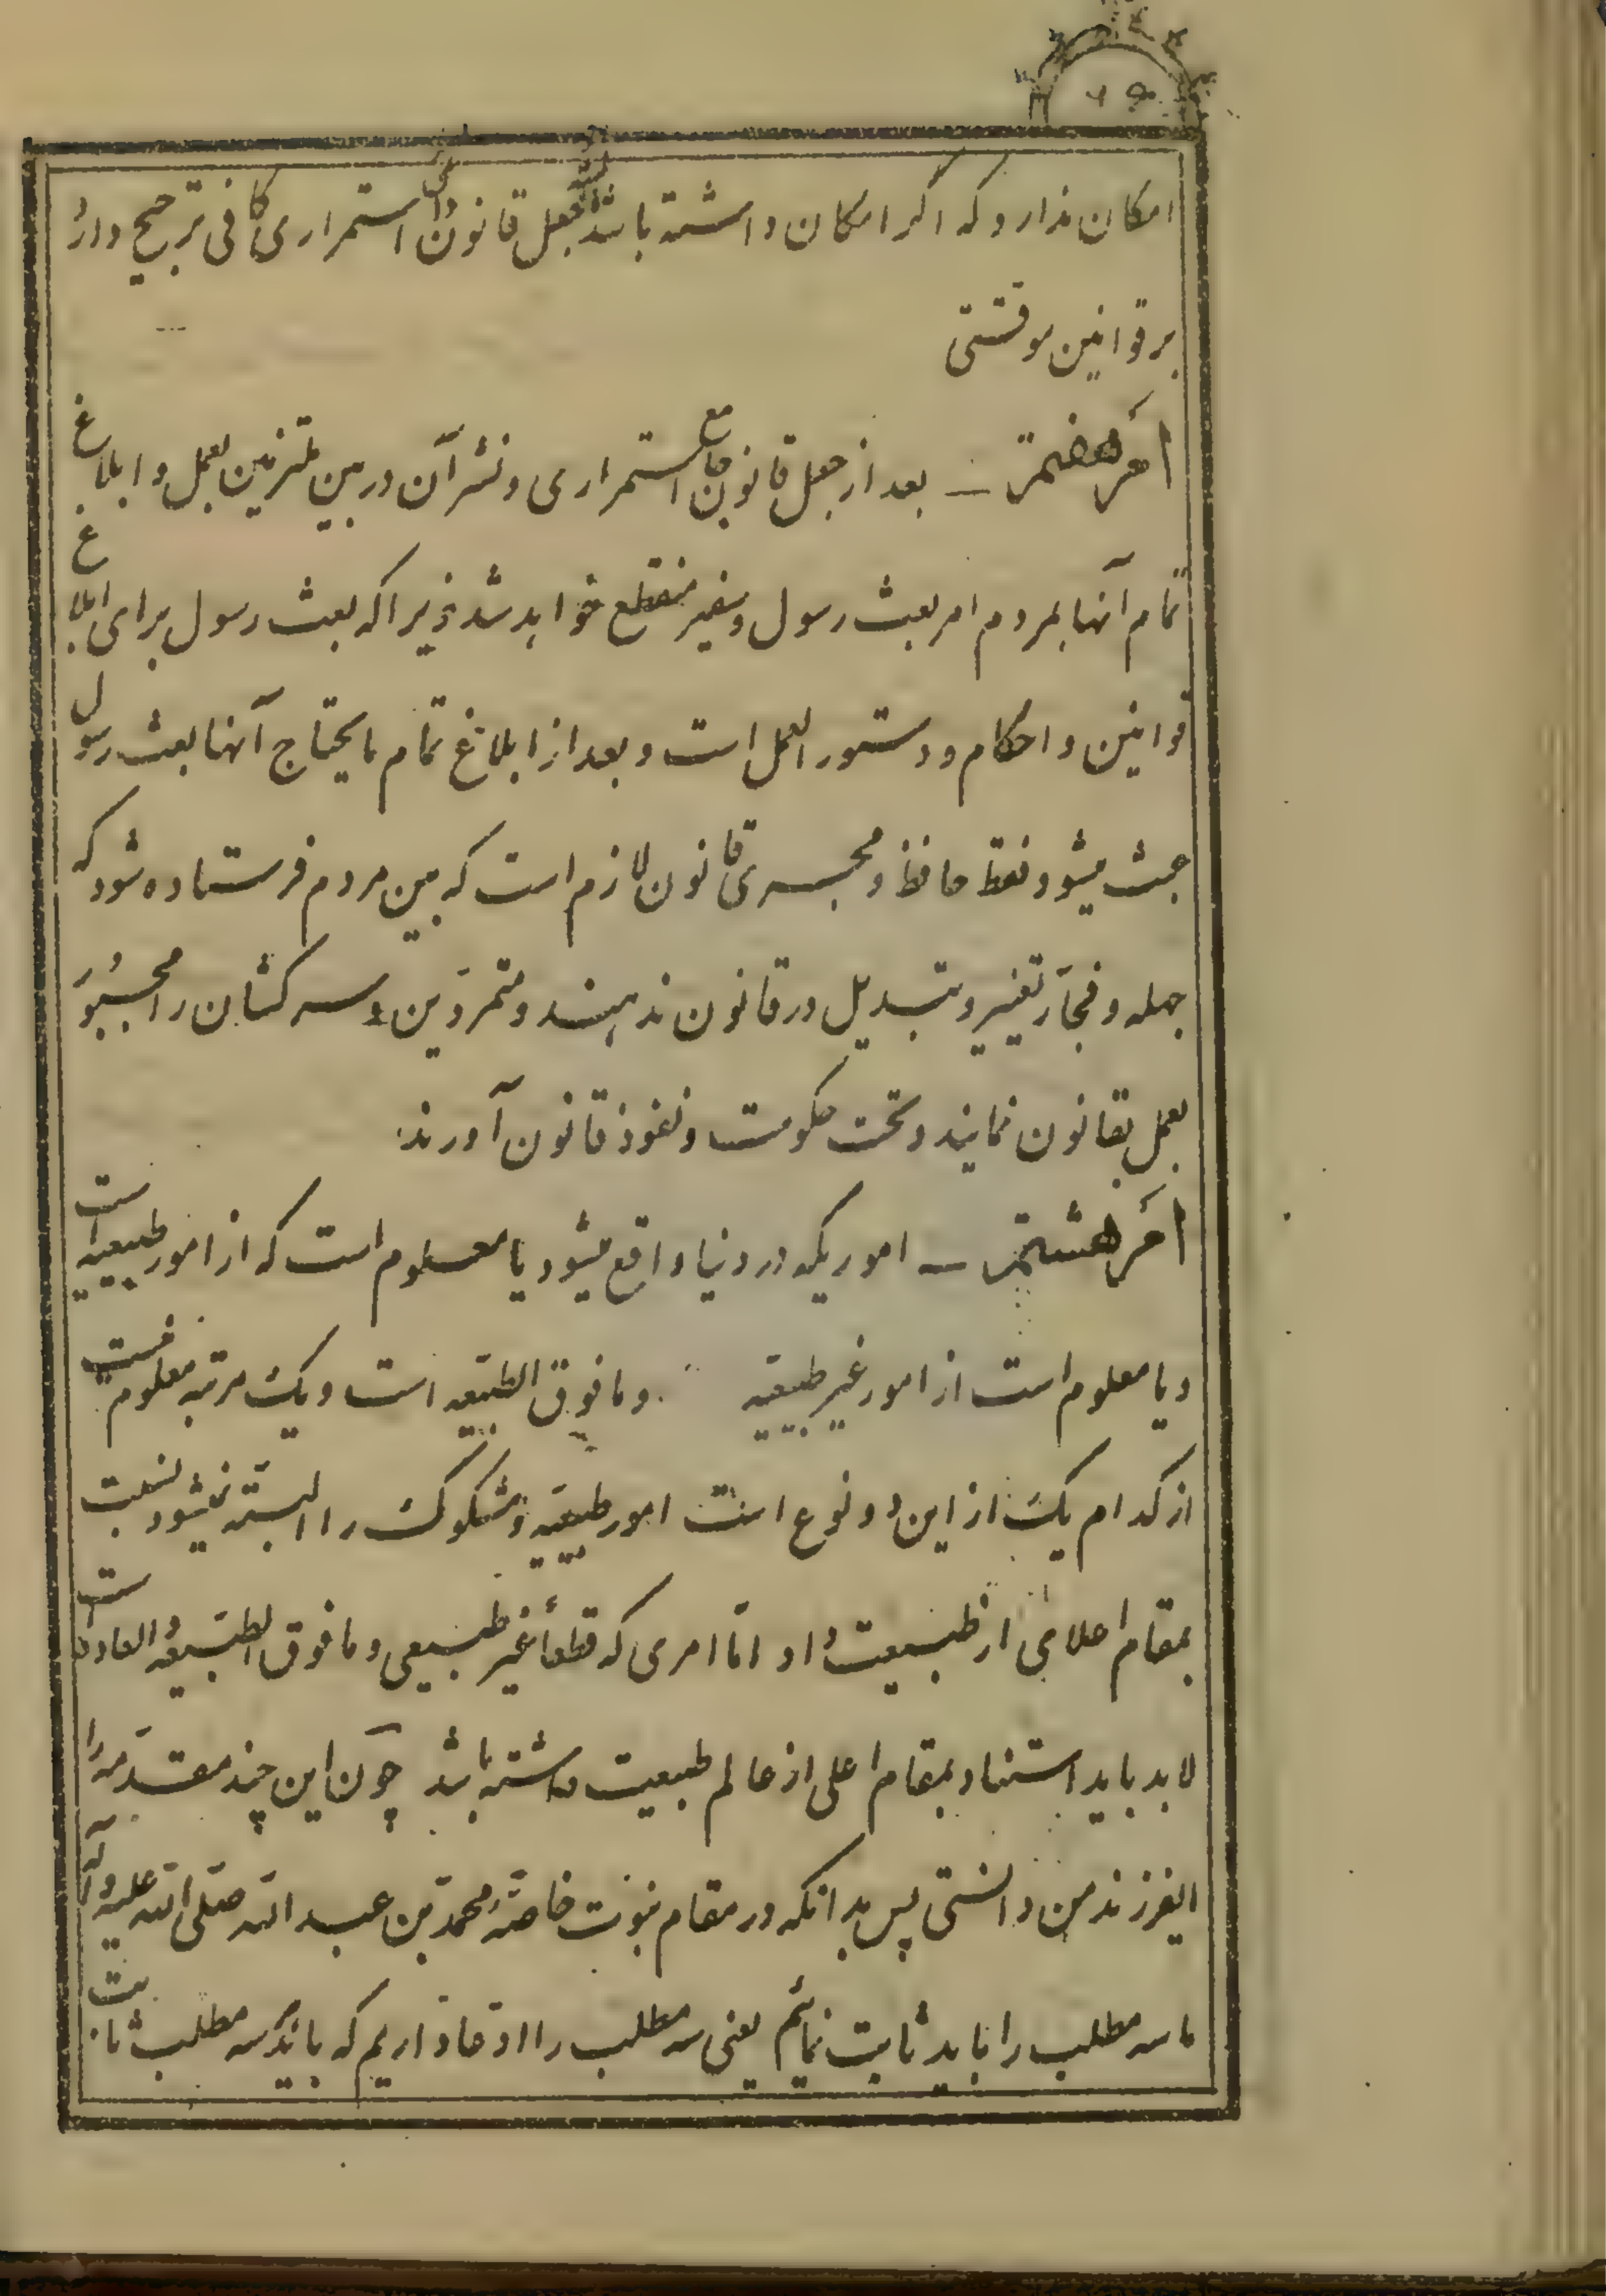 امکان ندارد که اگر امکان داشته باشد جعل قانون استمراری کافی ترجیح دارد
بر قوانین موقتی
امر هفتم ـ بعد از جعل قانون جامع استمراری و نشر آن در بین ملتزمین بعمل و ابلاغ
تمام آنها بمردم امر بعث رسول و سفیر منقطع خواهد شد زیرا که بعث رسول برای ابلاغ
قوانین و احکام و دستور العمل است و بعد از ابلاغ تمام مایحتاج آنها بعث رسول
عبث میشود فقط حافظ و مجری قانون لازم است که بین مردم فرستاده شود که
جهله و فجار تغییر و تبدیل در قانون ندهند و متمردین و سرکشان را مجبور
بعمل بقانون نمایند و تحت حکومت و نفوذ قانون آورند
امر هشتم ـ اموریکه در دنیا واقع میشود یا معلوم است که از امور طبیعیه است
و یا معلوم است از امور غیر طبیعیه و مافوق الطبیعه است و یک مرتبه معلوم نیست
از کدام یک از این دو نوع است امور طبیعیه و مشکوک را البته نمیشود نسبت
بمقام اعلای از طبیعت داد اما امری که قطعاً غیر طبیعی و مافوق الطبیعه و العاده است
لابد باید استناد بمقام اعلی از عالم طبیعت داشته باشد چون این چند مقدمه را
ایفرزند من دانستی پس بدانکه در مقام نبوت خاصّه محمد بن عبد الله صلی الله علیه و آله
ما سه مطلب را باید ثابت نمائیم یعنی سه مطلب را ادعا داریم که باید سه مطلب ثابت